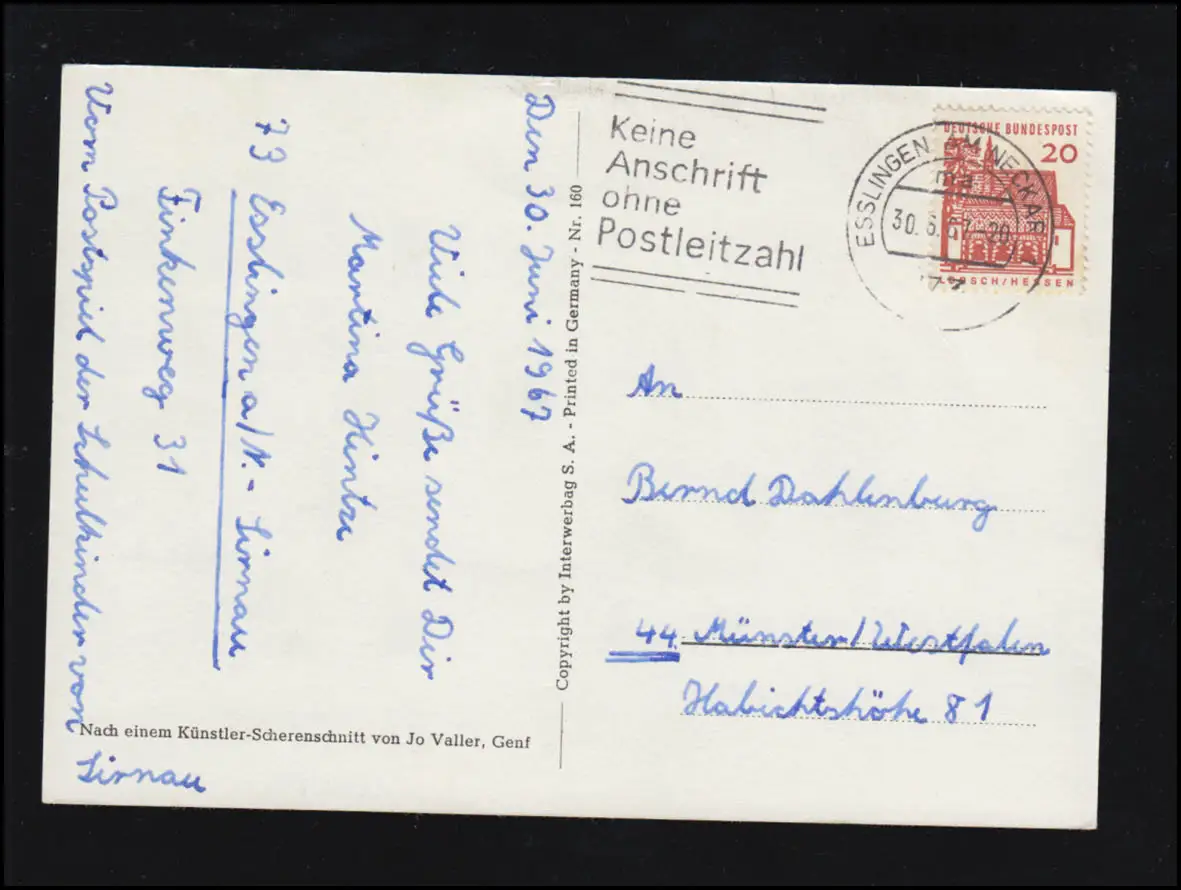 Den 30. Juni 1967
Viele Grüße sendet Dir
Martina Hintze
73 Esslingen a/N.- Sirnau
Finkenweg 31
Vom Postspiel der Schulkinder von
Sirnau
Nach einem Künstler-Scherenschnitt von Jo Valler, Genf
Copyright by Interwerbag S. A. - Printed in Germany - Nr. 160
Keine
Anschrift
ohne
Postleitzahl
ESSLINGEN AM NECKAR
ma
30. 6. 67-20
DEUTSCHE BUNDESPOST
20
LORSCH/HESSEN
An
Bernd Dahlenburg
44 Münster/Westfalen
Habichtshöhe 81